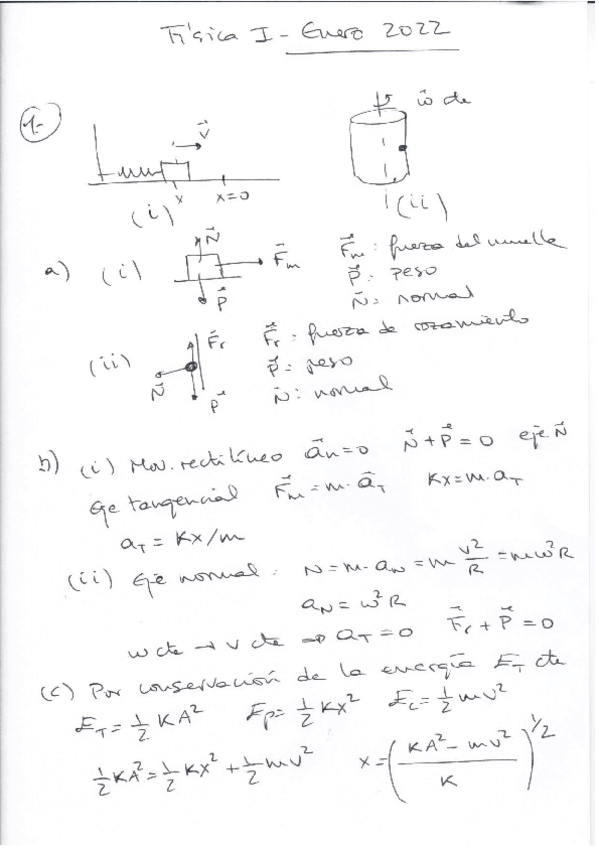 Física I - Enero 2022
1.-
v⃗
ω⃗ cte
x x=0
(i) (ii)
a) (i) N⃗ F⃗m P⃗ F⃗m: fuerza del muelle
P⃗: peso
N⃗: normal
(ii) F⃗r N⃗ P⃗ F⃗r: fuerza de rozamiento
P⃗: peso
N⃗: normal
b) (i) Mov. rectilíneo a⃗n=0 N⃗+P⃗=0 eje N⃗
Eje tangencial F⃗m=m·a⃗T Kx=m·aT
aT = Kx/m
(ii) Eje normal: N=m·aN=m v²/R=mω²R
aN=ω²R
ω cte → v cte ⇒ aT=0 F⃗r+P⃗=0
(c) Por conservación de la energía ET cte
ET=½KA² Ep=½Kx² Ec=½mv²
½KA²=½Kx²+½mv² x=((KA²-mv²)/K)^1/2